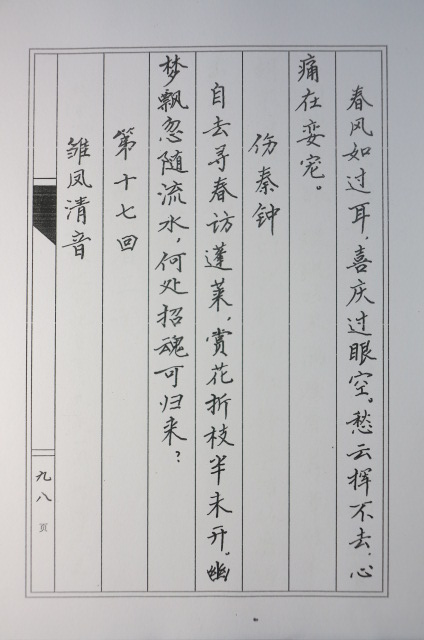 春风如过耳，喜庆过眼空。愁云挥不去，心
痛在娈宠。
伤秦钟
自去寻春访蓬莱，赏花折枝半未开。幽
梦飘忽随流水，何处招魂可归来？
第十七回
雏凤清音
九八页